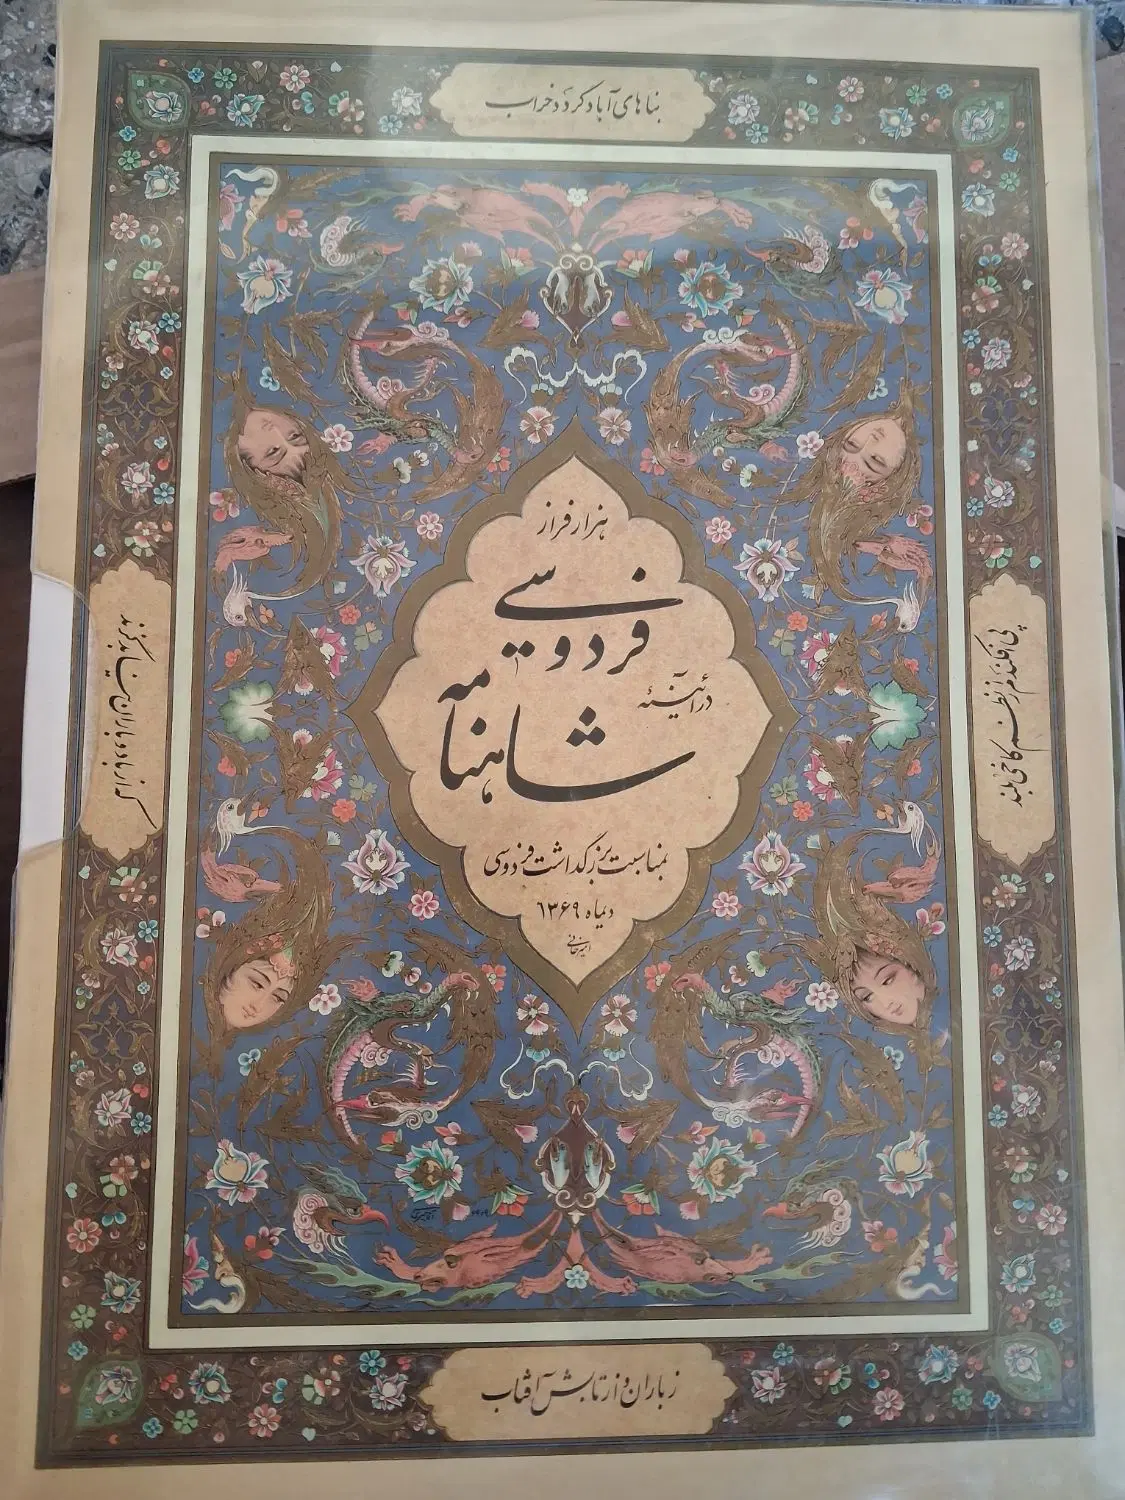 بناهای آباد گردد خراب
ز باران و از تابش آفتاب
پی افکندم از نظم کاخی بلند
که از باد و باران نیابد گزند
هزار فراز
فردوسی
در آئینهٔ
شاهنامه
بمناسبت بزرگداشت فردوسی
دیماه ۱۳۶۹
امیرخانی